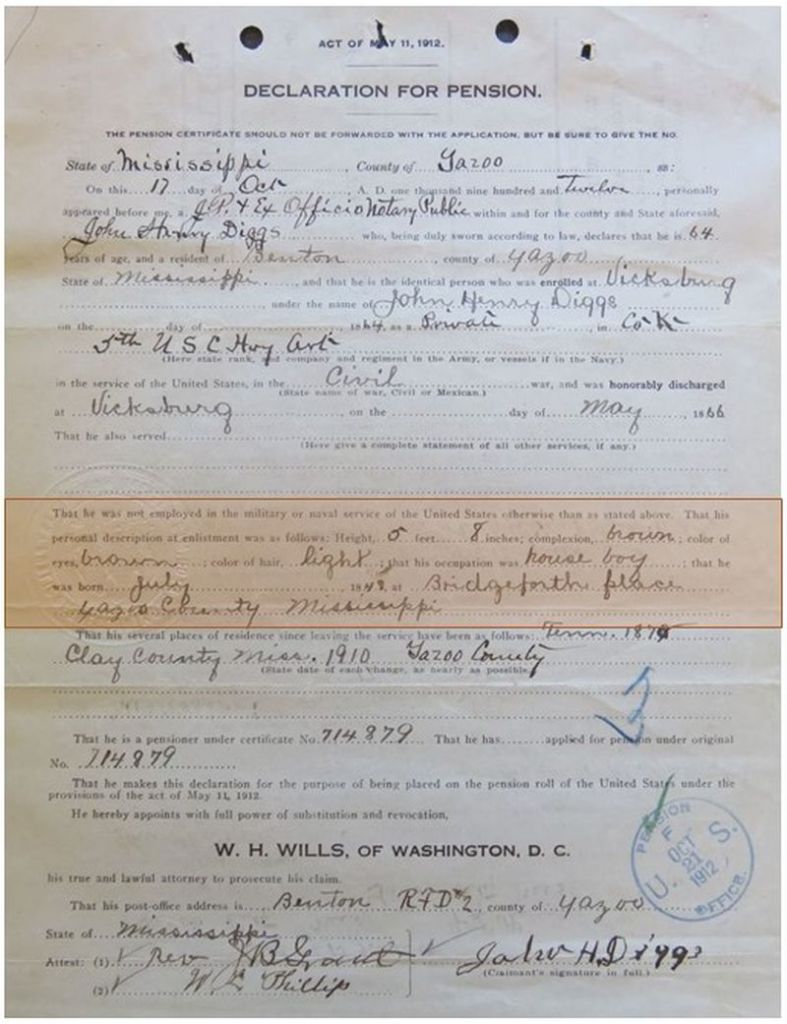 ACT OF MAY 11, 1912.
DECLARATION FOR PENSION.
THE PENSION CERTIFICATE SHOULD NOT BE FORWARDED WITH THE APPLICATION, BUT BE SURE TO GIVE THE NO.
State of Mississippi, County of Yazoo, ss:
On this 17 day of Oct, A. D. one thousand nine hundred and Twelve, personally
appeared before me, a J.P. & Ex Officio Notary Public within and for the county and State aforesaid,
John Henry Diggs who, being duly sworn according to law, declares that he is 64
years of age, and a resident of Benton, county of Yazoo
State of Mississippi, and that he is the identical person who was enrolled at Vicksburg
under the name of John Henry Diggs
on the day of, 1864, as a Private, in Co K
5th U S C Hvy Art
(Here state rank, and company and regiment in the Army, or vessels if in the Navy.)
in the service of the United States, in the Civil war, and was honorably discharged
(State name of war, Civil or Mexican.)
at Vicksburg, on the day of May, 1866
That he also served
(Here give a complete statement of all other services, if any.)
That he was not employed in the military or naval service of the United States otherwise than as stated above. That his
personal description at enlistment was as follows: Height, 5 feet 8 inches; complexion, brown; color of
eyes, brown; color of hair, light; that his occupation was house boy; that he
was born July, 1848, at Bridgeforth place
Yazoo County Mississippi
That his several places of residence since leaving the service have been as follows: Tenn. 187
Clay County Miss. 1910 Yazoo County
(State date of each change, as nearly as possible.)
That he is a pensioner under certificate No. 714879. That he has applied for pension under original
No. 714879
That he makes this declaration for the purpose of being placed on the pension roll of the United States under the
provisions of the act of May 11, 1912.
He hereby appoints with full power of substitution and revocation,
W. H. WILLS, OF WASHINGTON, D. C.
his true and lawful attorney to prosecute his claim.
That his post-office address is Benton RFD #2, county of Yazoo
State of Mississippi
Attest: (1) Rev J B Grant
John H. Diggs
(Claimant's signature in full.)
(2) W E Phillip
PENSION OFFICE
U. S.
F
OCT
21
1912